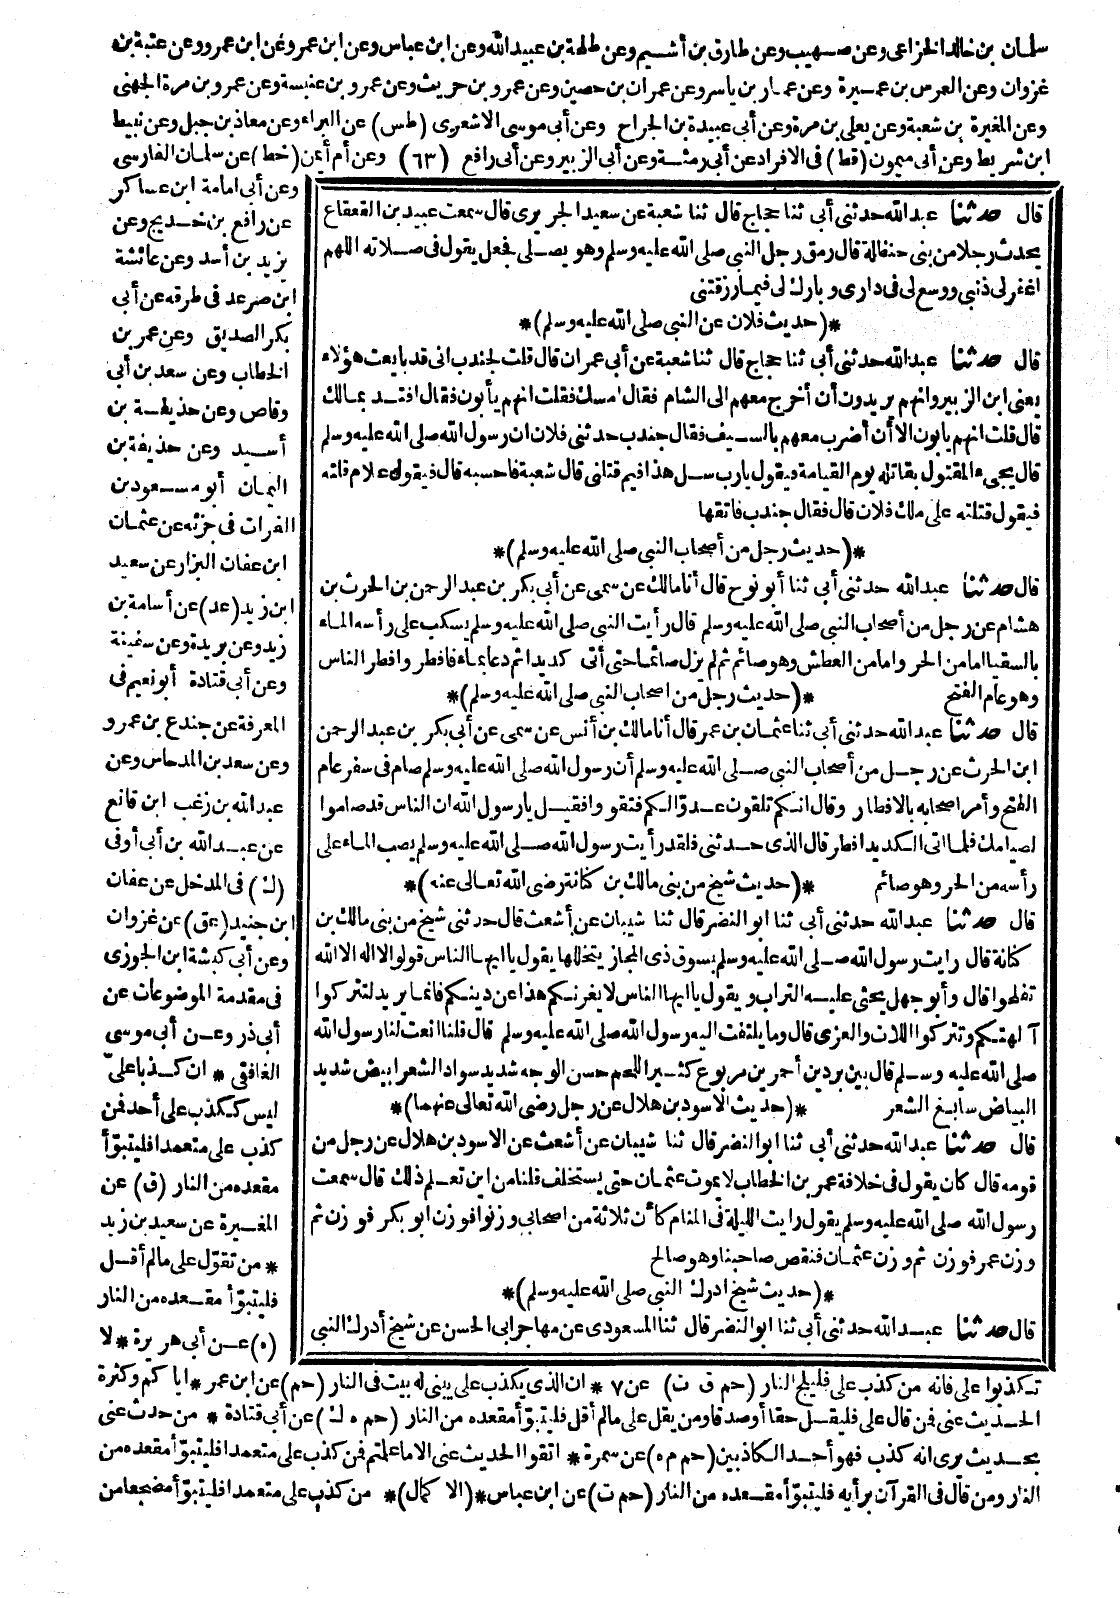 سلمان بن خالد الخزاعى وعن صهيب وعن طارق بن أشيم وعن طلحة بن عبيد الله وعن ابن عباس وعن ابن عمر وعن ابن عمرو وعن عتبة بن
غزوان وعن العرس بن عميرة وعن عمار بن ياسر وعن عمران بن حصين وعن عمرو بن حريث وعن عمرو بن عنبسة وعن عمرو بن مرة الجهنى
وعن المغيرة بن شعبة وعن يعلى بن مرة وعن أبى عبيدة بن الجراح وعن أبى موسى الاشعرى (طس) عن البراء وعن معاذ بن جبل وعن نبيط
ابن شريط وعن أبى ميمون (قط) فى الافراد عن أبى رمثة وعن أبى الزبير وعن أبى رافع (٦٣) وعن أم أيمن (خط) عن سلمان الفارسى
قال حدثنا عبد الله حدثنى أبى ثنا حجاج قال ثنا شعبة عن سعيد الجريرى قال سمعت عبيد بن القعقاع
يحدث رجلا من بنى حنظلة قال رمق رجل النبى صلى الله عليه وسلم وهو يصلى فجعل يقول فى صلاته اللهم
اغفر لى ذنبى ووسع لى فى دارى وبارك لى فيما رزقتنى
*(حديث فلان عن النبى صلى الله عليه وسلم)*
قال حدثنا عبد الله حدثنى أبى ثنا حجاج قال ثنا شعبة عن أبى عمران قال قلت لجندب انى قد بايعت هؤلاء
يعنى ابن الزبير وانهم يريدون أن أخرج معهم الى الشام فقال امسك فقلت انهم يأبون فقال افتد بمالك
قال قلت انهم يابون الا أن أضرب معهم بالسيف فقال جندب حدثنى فلان ان رسول الله صلى الله عليه وسلم
قال يجىء المقتول بقاتله يوم القيامة فيقول يارب سل هذا فيم قتلنى قال شعبة فاحسبه قال فيقول علام قتلته
فيقول قتلته على ملك فلان قال فقال جندب فاتقها
*(حديث رجل من أصحاب النبى صلى الله عليه وسلم)*
قال حدثنا عبد الله حدثنى أبى ثنا أبو نوح قال أنا مالك عن سمى عن أبى بكر بن عبد الرحمن بن الحرث بن
هشام عن رجل من أصحاب النبى صلى الله عليه وسلم قال رأيت النبى صلى الله عليه وسلم يسكب على رأسه الماء
بالسقيا امامن الحر وامامن العطش وهو صائم ثم لم يزل صائما حتى أتى كديدا ثم دعا بماء فافطر وافطر الناس
وهو عام الفتح *(حديث رجل من اصحاب النبى صلى الله عليه وسلم)*
قال حدثنا عبد الله حدثنى أبى ثنا عثمان بن عمر قال أنا مالك بن أنس عن سمى عن أبى بكر بن عبد الرحمن
ابن الحرث عن رجل من أصحاب النبى صلى الله عليه وسلم أن رسول الله صلى الله عليه وسلم صام فى سفر عام
الفتح وأمر اصحابه بالافطار وقال انكم تلقون عدوّا لكم فتقووا فقيل يا رسول الله ان الناس قد صاموا
لصيامك فلما اتى الكديد افطر قال الذى حدثنى فلقد رأيت رسول الله صلى الله عليه وسلم يصب الماء على
رأسه من الحر وهو صائم *(حديث شيخ من بنى مالك بن كنانة رضى الله تعالى عنه)*
قال حدثنا عبد الله حدثنى أبى ثنا ابو النضر قال ثنا شيبان عن أشعث قال حدثنى شيخ من بنى مالك بن
كنانة قال رايت رسول الله صلى الله عليه وسلم بسوق ذى المجاز يتخللها يقول يا ايها الناس قولوا لا اله الا الله
تفلحوا قال وأبو جهل يحثى عليه التراب ويقول يا ايها الناس لا يغرنكم هذا عن دينكم فانما يريد لتتركوا
آلهتكم وتتركوا اللات والعزى قال وما يلتفت اليه رسول الله صلى الله عليه وسلم قال قلنا انعت لنا رسول الله
صلى الله عليه وسلم قال بين بردين أحمرين مربوع كثير اللحم حسن الوجه شديد سواد الشعر ابيض شديد
البياض سابغ الشعر *(حديث الاسود بن هلال عن رجل رضى الله تعالى عنهما)*
قال حدثنا عبد الله حدثنى أبى ثنا ابو النضر قال ثنا شيبان عن أشعث عن الاسود بن هلال عن رجل من
قومه قال كان يقول فى خلافة عمر بن الخطاب لا يموت عثمان حتى يستخلف قلنا من اين تعلم ذلك قال سمعت
رسول الله صلى الله عليه وسلم يقول رايت الليلة فى المنام كأن ثلاثة من اصحابى وزنوا فوزن ابو بكر فوزن ثم
وزن عمر فوزن ثم وزن عثمان فنقص صاحبنا وهو صالح
*(حديث شيخ ادرك النبى صلى الله عليه وسلم)*
قال حدثنا عبد الله حدثنى أبى ثنا ابو النضر قال ثنا المسعودى عن مهاجر ابى الحسن عن شيخ أدرك النبى
وعن أبى امامة ابن عساكر
عن رافع بن خديج وعن
يزيد بن أسد وعن عائشة
ابن صرعد فى طرقه عن أبى
بكر الصديق وعن عمر بن
الخطاب وعن سعد بن أبى
وقاص وعن حذيفة بن
أسيد وعن حذيفة بن
اليمان أبو مسعود بن
الفرات فى جزئه عن عثمان
ابن عفان البزار عن سعيد
ابن زيد (عد) عن أسامة بن
زيد وعن بريدة وعن سفينة
وعن أبى قتادة أبو نعيم فى
المعرفة عن جندع بن عمرو
وعن سعد بن المدحاس وعن
عبد الله بن زغب ابن قانع
عن عبد الله بن أبى أوفى
(ك) فى المدخل عن عفان
ابن حبيد (عق) عن غزوان
وعن أبى كبشة ابن الجوزى
فى مقدمة الموضوعات عن
أبى ذر وعن أبى موسى
الغافقى * ان كذبا علىّ
ليس ككذب على أحد فمن
كذب على متعمدا فليتبوّأ
مقعده من النار (ق) عن
المغيرة عن سعيد بن زيد
* من تقوّل على ما لم أقل
فليتبوّأ مقعده من النار
(ه) عن أبى هريرة * لا
تكذبوا على فانه من كذب على فليلج النار (حم ق ت) عن ٧ * ان الذى يكذب على يبنى له بيت فى النار (حم) عن ابن عمر * اياكم وكثرة
الحديث عنى فمن قال على فليقل حقا أو صدقا ومن يقل على ما لم أقل فليتبوّأ مقعده من النار (حم ه ك) عن أبى قتادة * من حدث عنى
بحديث يرى انه كذب فهو أحد الكاذبين (حم م ه) عن سمرة * اتقوا الحديث عنى الا ما علمتم فمن كذب على متعمدا فليتبوّأ مقعده من
النار ومن قال فى القرآن برأيه فليتبوّأ مقعده من النار (حم ت) عن ابن عباس *(الاكمال)* من كذب على متعمدا فليتبوّأ مضجعا من